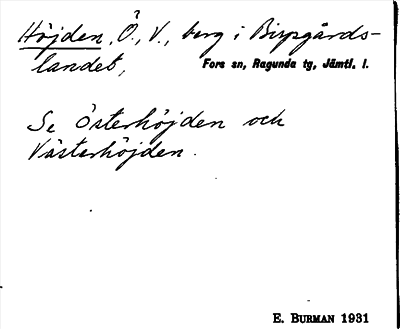 Höjden, Ö., V., berg i Bispgårds-
landet, Fors sn, Ragunda tg, Jämtl. l.
Se Österhöjden och
Västerhöjden.
E. BURMAN 1931